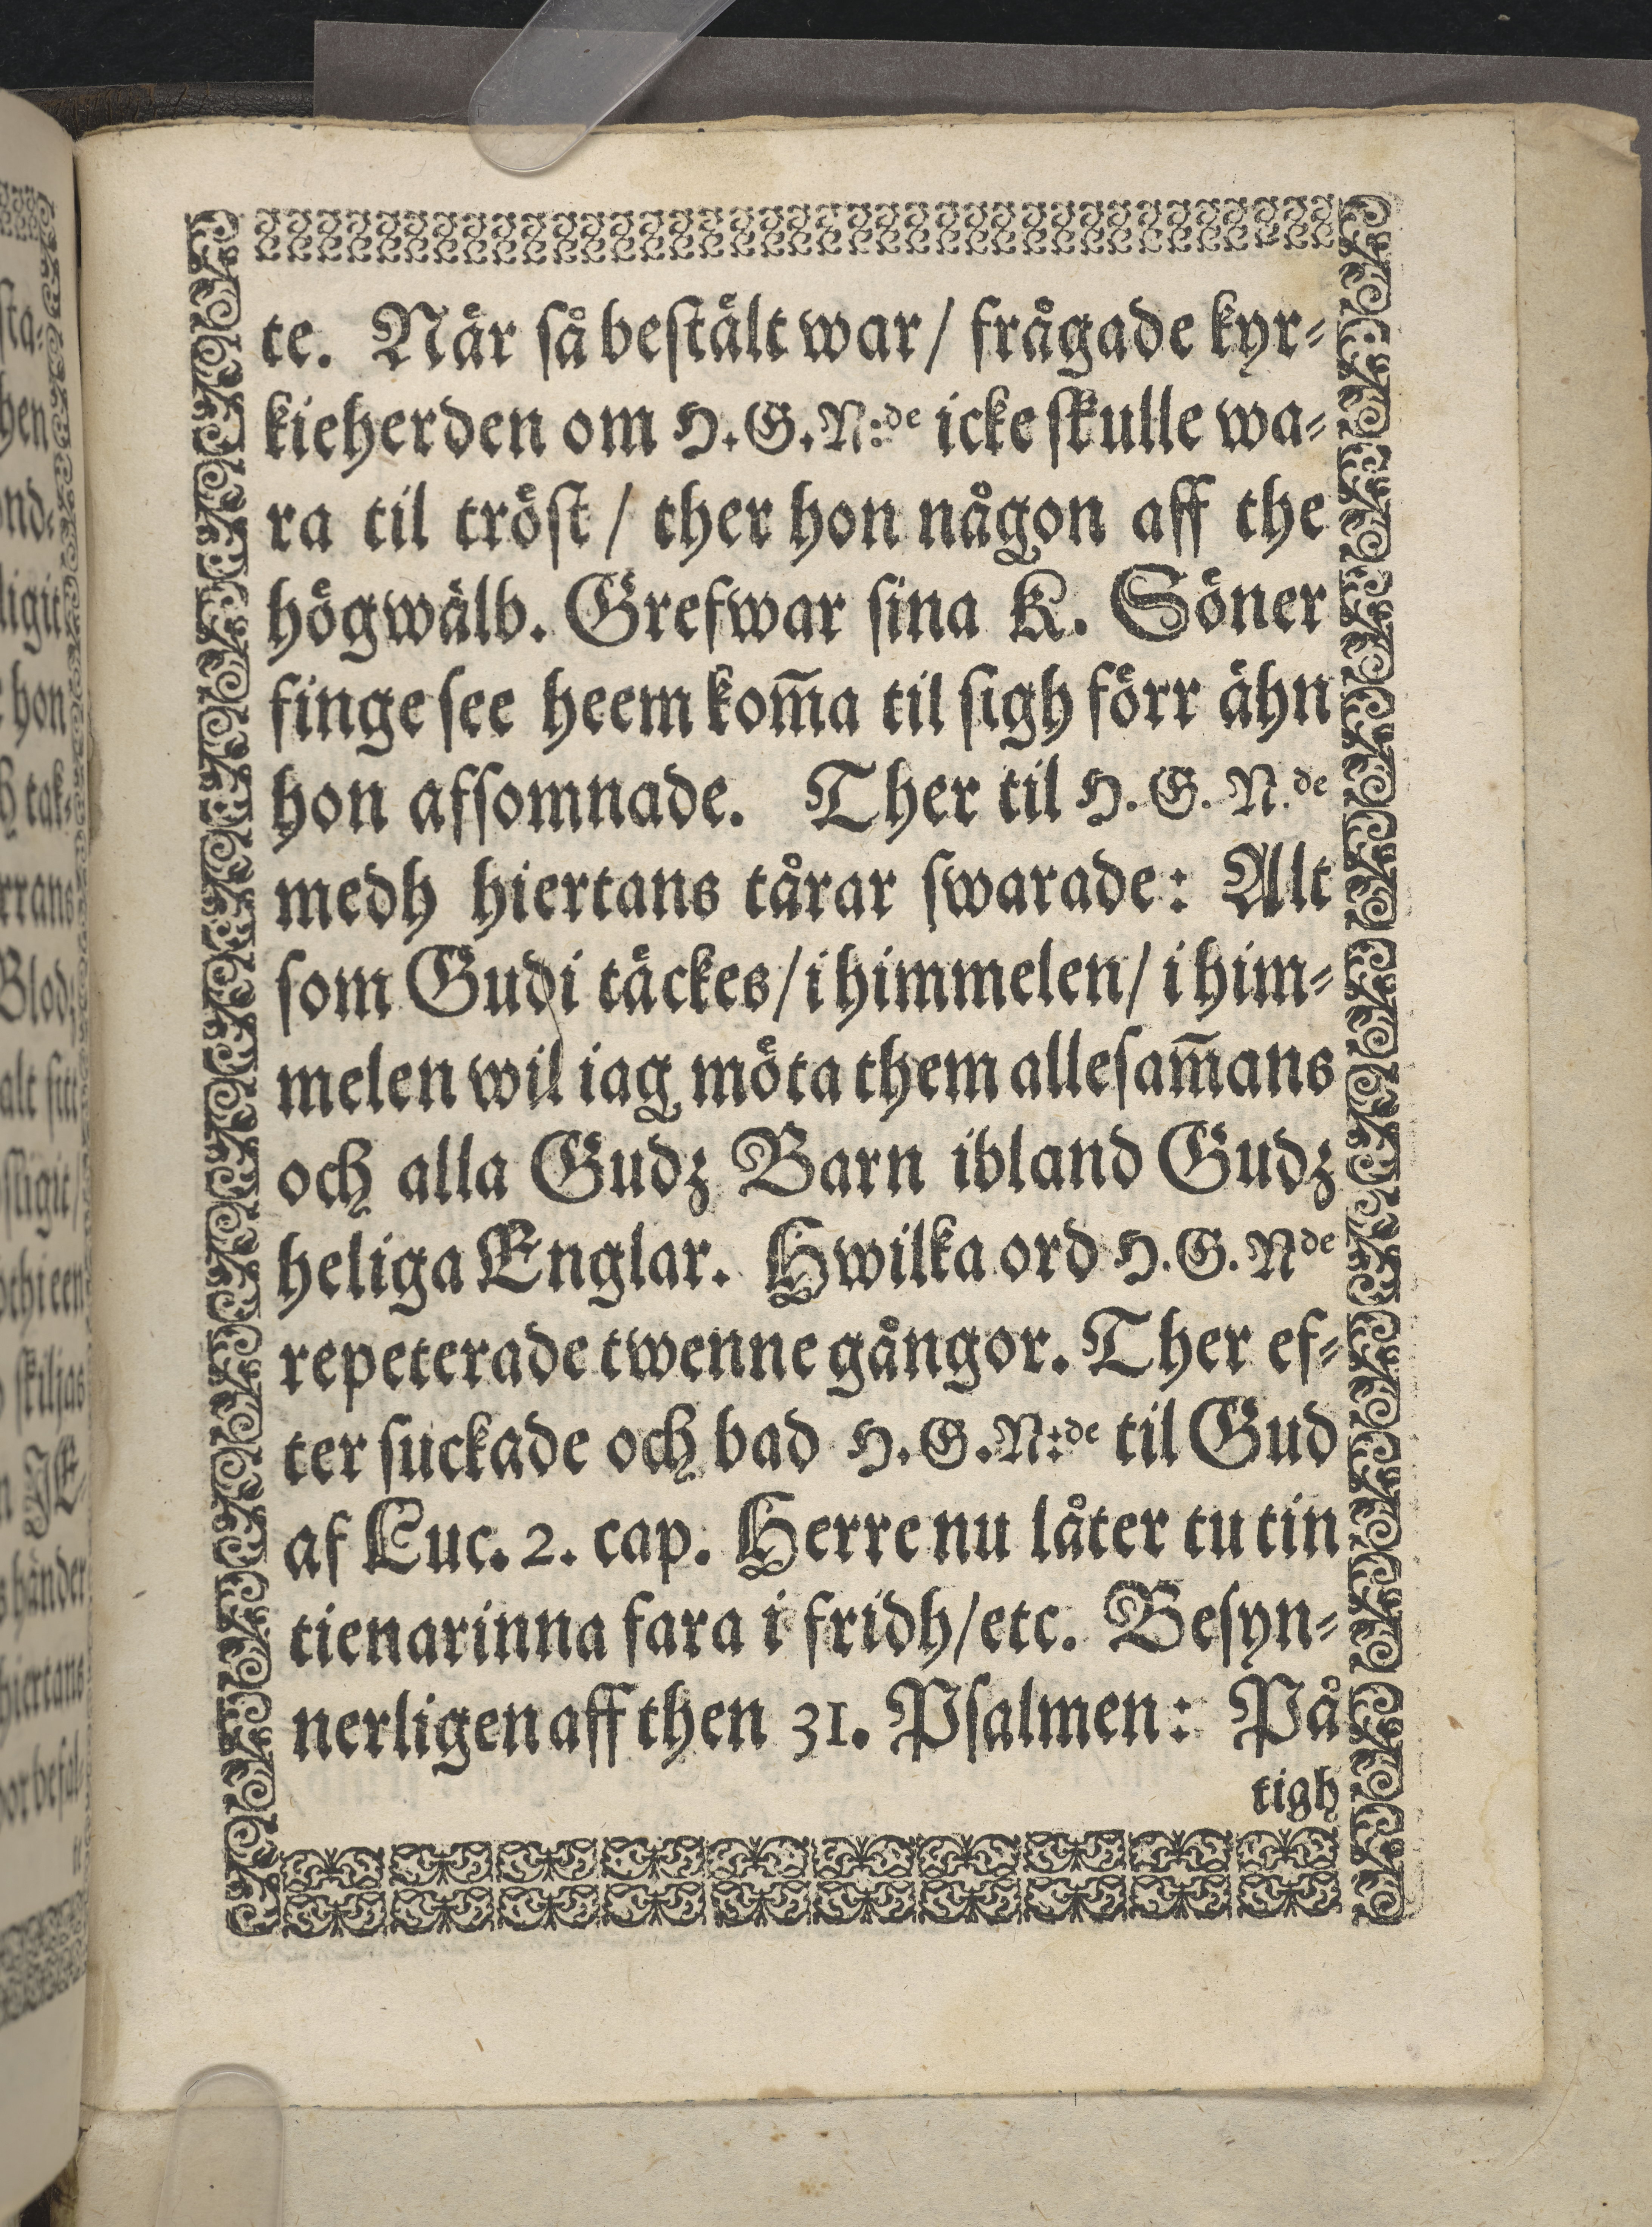 te. När så bestält war/ frågade kyr-
kieherden om H.G.N:de icke skulle wa-
ra til tröst/ ther hon någon aff the
högwälb. Grefwar sina K. Söner
finge see heem kom̄a til sigh förr ähn
hon afsomnade. Ther til H.G.N.de
medh hiertans tårar swarade: Alt
som Gudi täckes/ i himmelen/ i him-
melen wil iag möta them allesam̄ans
och alla Gudz Barn ibland Gudz
heliga Englar. Hwilka ord H.G.Nde
repeterade twenne gångor. Ther ef-
ter suckade och bad H.G.N:de til Gud
af Luc. 2. cap. Herre nu låter tu tin
tienarinna fara i fridh/ etc. Besyn-
nerligen aff then 31. Psalmen: På
tigh